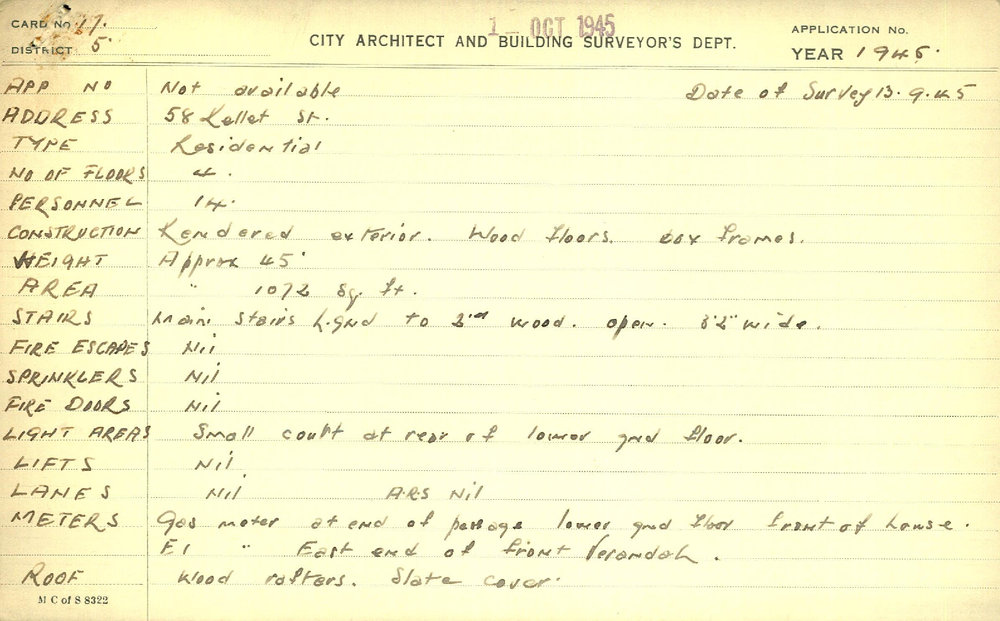 CARD No 17.
1 – OCT 1945
DISTRICT 5
CITY ARCHITECT AND BUILDING SURVEYOR'S DEPT.
APPLICATION No.
YEAR 1945
APP NO Not available Date of Survey 13.9.45
ADDRESS 58 Kellet St.
TYPE Residential
NO OF FLOORS 4.
PERSONNEL 14.
CONSTRUCTION Rendered exterior. Wood floors. box frames.
HEIGHT Approx 45'
AREA " 1072 Sq. ft.
STAIRS Main Stairs L.gnd to 2nd wood. open. 3'2" wide.
FIRE ESCAPES Nil
SPRINKLERS Nil
FIRE DOORS Nil
LIGHT AREAS Small court at rear of lower gnd floor.
LIFTS Nil
LANES Nil A.R.S Nil
METERS Gas meter at end of passage lower gnd floor front of house.
El " East end of front Verandah.
ROOF Wood rafters. Slate cover.
M C of S 8322